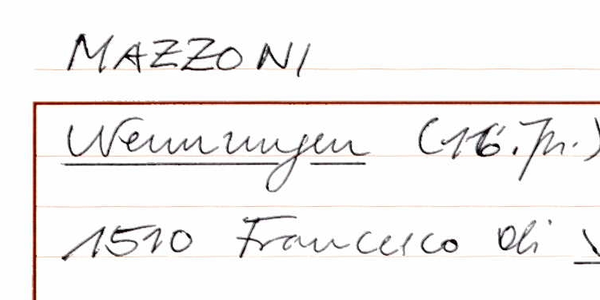 MAZZONI
Nennungen (16. Jh.)
1510 Francesco di